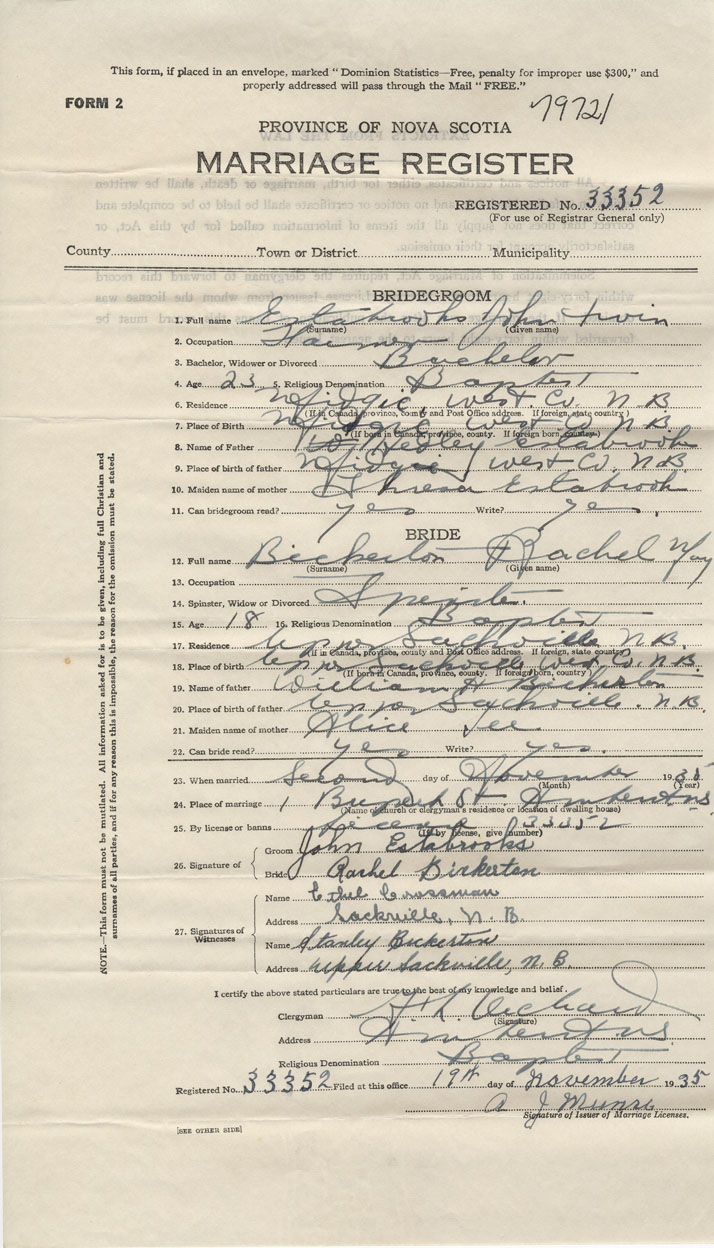 This form, if placed in an envelope, marked "Dominion Statistics—Free, penalty for improper use $300," and
properly addressed will pass through the Mail "FREE."
FORM 2
7972/
PROVINCE OF NOVA SCOTIA
MARRIAGE REGISTER
REGISTERED No. 33352
(For use of Registrar General only)
County Town or District Municipality
BRIDEGROOM
1. Full name Estabrooks John Irvin
(Surname) (Given name)
2. Occupation Farmer
3. Bachelor, Widower or Divorced Bachelor
4. Age 23 5. Religious Denomination Baptist
6. Residence Midgic, West Co. N B
(If in Canada, province, county and Post Office address. If foreign, state country)
7. Place of Birth Midgic West Co. N.B.
(If born in Canada, province, county. If foreign born, country)
8. Name of Father Hedley Estabrooks
9. Place of birth of father Midgic West Co. N.B.
10. Maiden name of mother Estabrook
11. Can bridegroom read? yes Write? yes.
BRIDE
12. Full name Bickerton Rachel May
(Surname) (Given name)
13. Occupation
14. Spinster, Widow or Divorced Spinster.
15. Age 18 16. Religious Denomination Baptist
17. Residence Upper Sackville N.B.
(If in Canada, province, county and Post Office address. If foreign, state country)
18. Place of birth Upper Sackville West Co. N.B.
(If born in Canada, province, county. If foreign born, country)
19. Name of father William H Bickerton
20. Place of birth of father Upper Sackville. N.B.
21. Maiden name of mother Alice
22. Can bride read? yes Write? yes.
23. When married Second day of November 1935
(Month) (Year)
24. Place of marriage St Amherst N.S.
(Name of church or clergyman's residence or location of dwelling house)
25. By license or banns License 33352
(If by license, give number)
26. Signature of
Groom John Estabrooks
Bride Rachel Bickerton
27. Signatures of Witnesses
Name Ethel Crossman
Address Sackville, N. B.
Name Stanley Bickerton
Address Upper Sackville, N. B.
I certify the above stated particulars are true to the best of my knowledge and belief.
Clergyman
(Signature)
Address Amherst N.S.
Religious Denomination Baptist
Registered No. 33352 Filed at this office 19th day of November 1935
A J Munro
Signature of Issuer of Marriage Licenses.
[SEE OTHER SIDE]
NOTE.—This form must not be mutilated. All information asked for is to be given, including full Christian and
surnames of all parties, and if for any reason this is impossible, the reason for the omission must be stated.